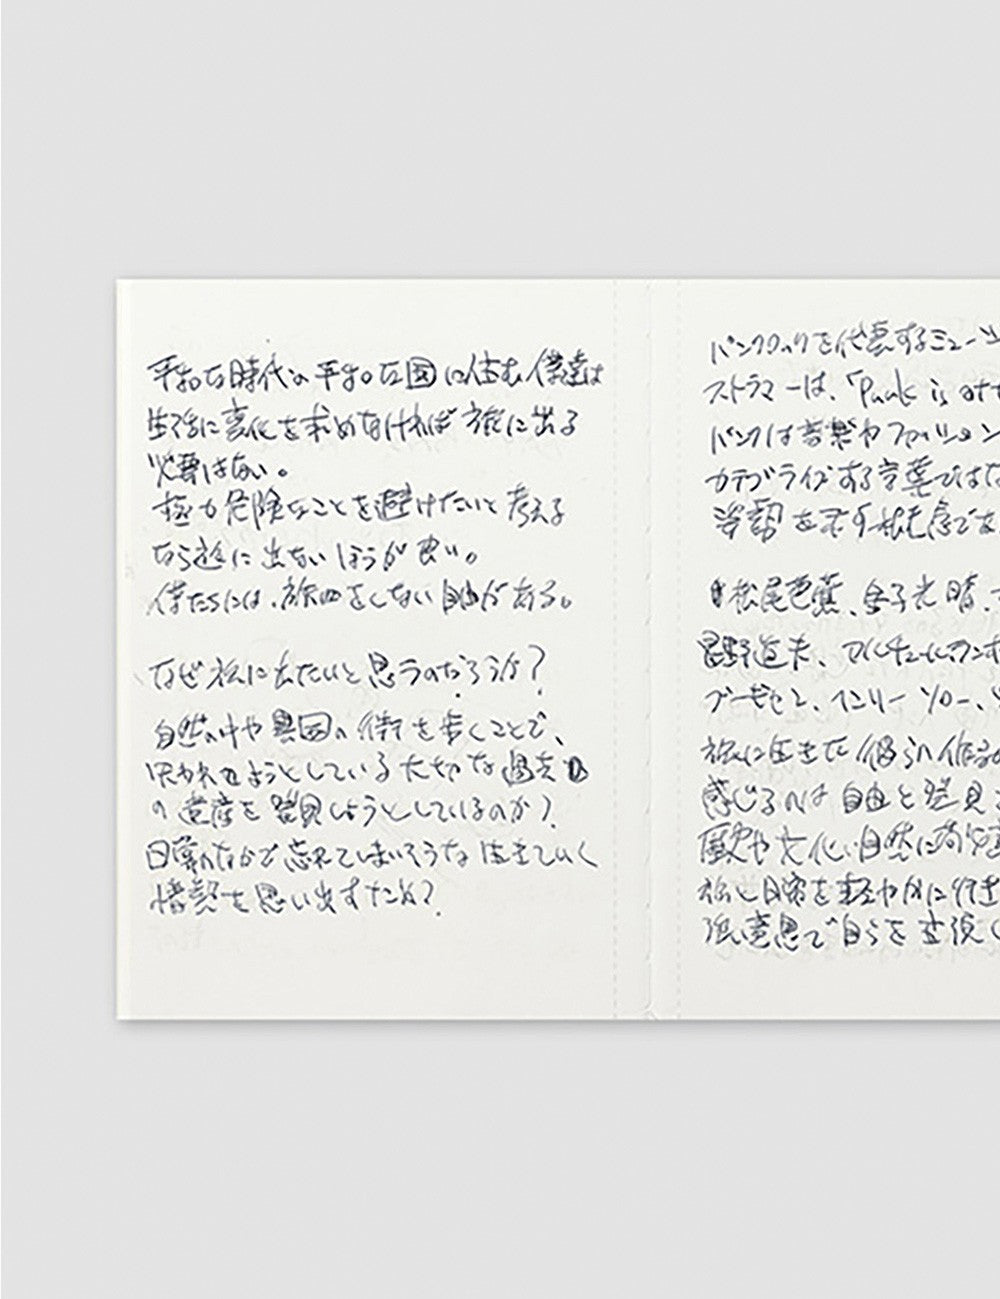 平和な時代の平和な国に住む僕達は
生活に変化を求めなければ旅に出る
必要はない。
極力危険なことを避けたいと考える
なら旅に出ないほうが良い。
僕たちには、旅をしない自由がある。
なぜ旅に出たいと思うのだろうか?
自然の中や異国の街を歩くことで、
失われようとしている大切な過去
の遺産を発見しようとしているのか?
日常のなかで忘れてしまいそうな生きていく
情熱を思い出すためか?
パンクロックを代表するミュージ
ストラマーは、「Punk is att
パンクは音楽やファッション
カテゴライズする言葉ではな
姿勢を示す根元感であ
松尾芭蕉、金子光晴、
星野道夫、アルチュール・ランボ
ブーセン、ヘンリー ソロー、
旅に生きた彼らの作品
感じるのは自由と発見
歴史や文化、自然に
旅と日常を軽やかに行き
強い意思で自らを